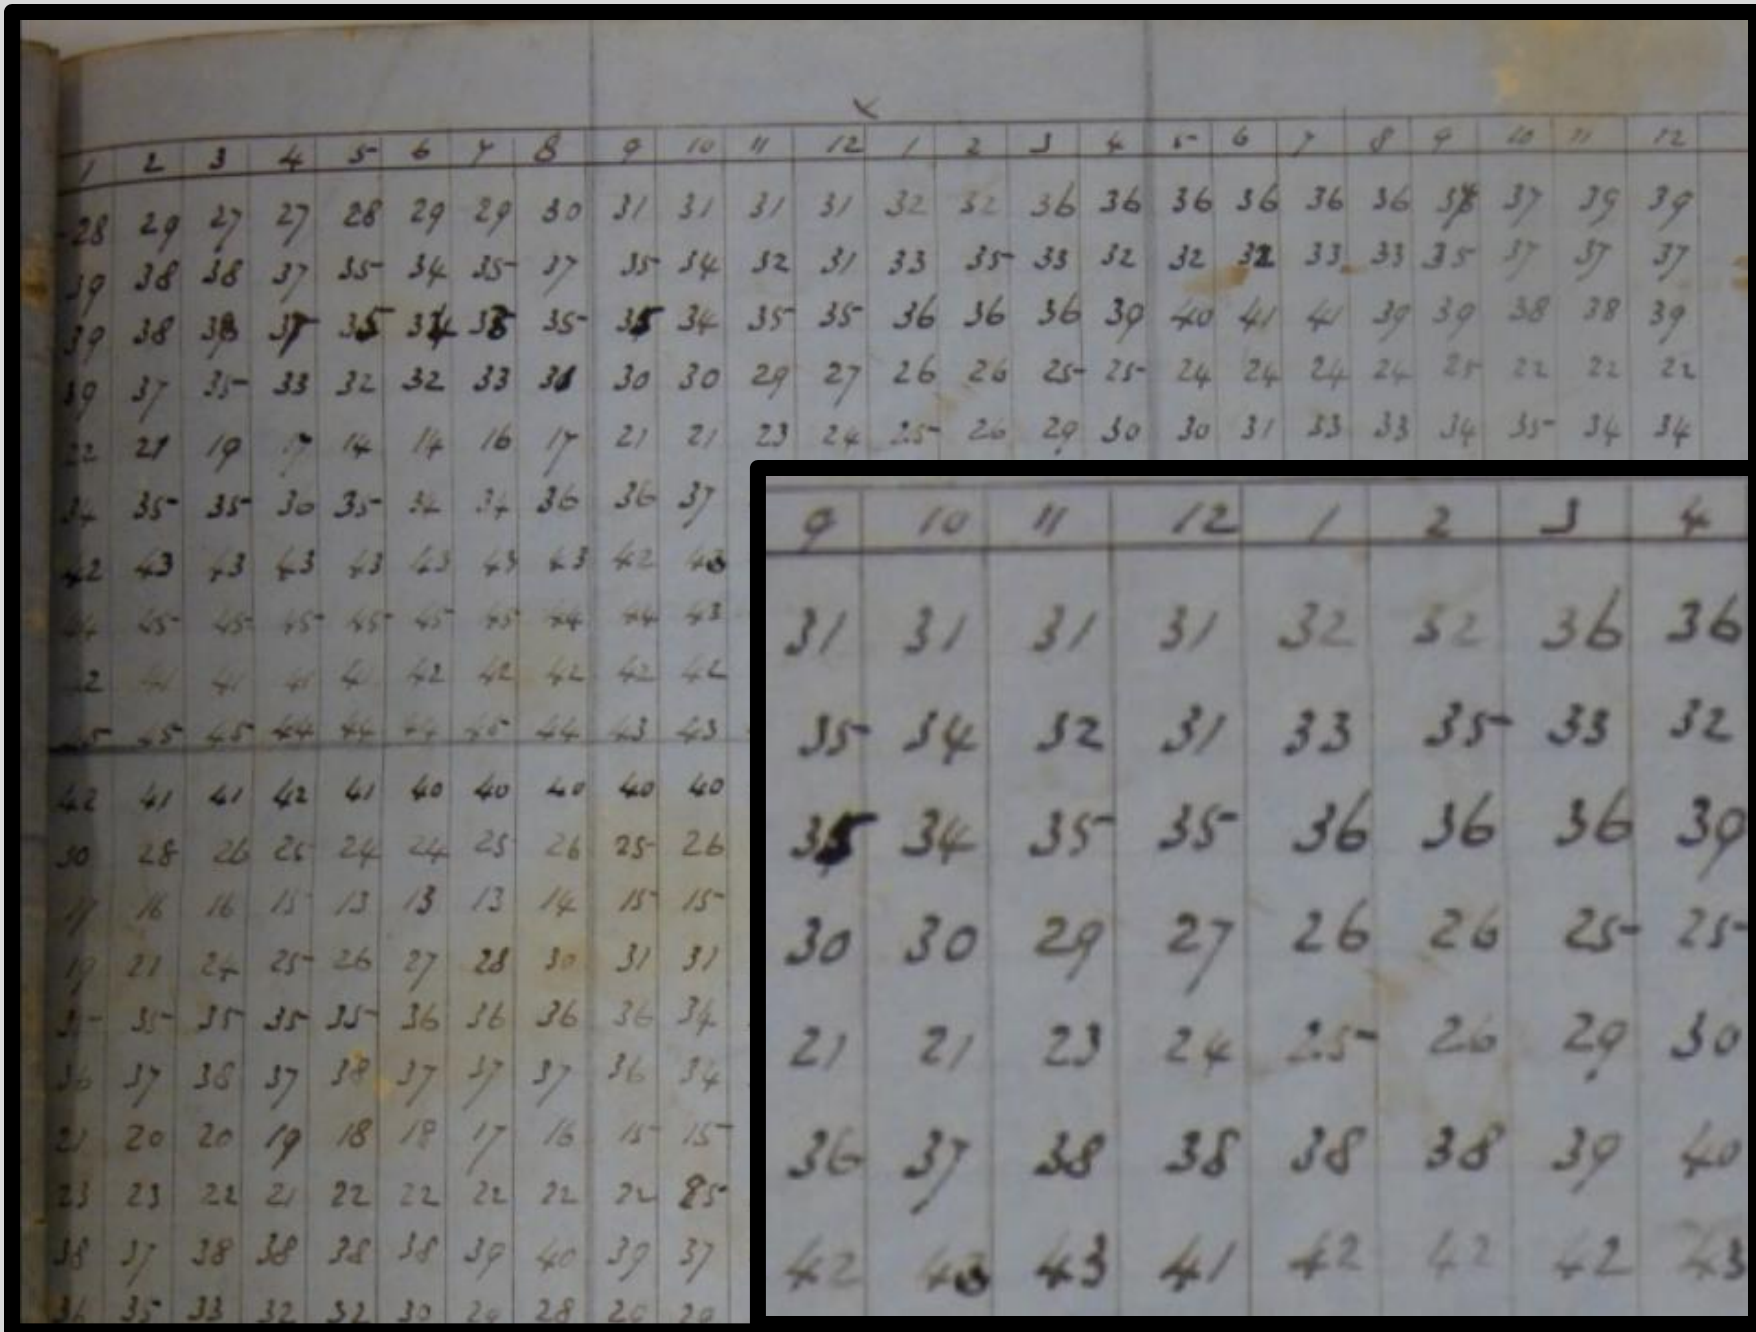 x
1 2 3 4 5 6 7 8 9 10 11 12 1 2 3 4 5 6 7 8 9 10 11 12
28 29 27 27 28 29 29 30 31 31 31 31 32 32 36 36 36 36 36 36 37 39 39
39 38 38 37 35 34 35 37 35 34 32 31 33 35 33 32 32 32 33 33 35 37 37 37
39 38 38 37 35 34 35 35 34 35 35 36 36 36 39 40 41 41 39 39 38 38 39
39 37 35 33 32 32 33 31 30 30 29 27 26 26 25 25 24 24 24 24 25 22 22 22
22 21 19 17 14 14 16 17 21 21 23 24 25 26 29 30 30 31 33 33 34 35 34 34
34 35 35 30 35 34 34 36 36 37
42 43 43 43 43 43 43 43 42 43
44 45 45 45 45 45 45 44 44 43
41 41 41 41 42 42 42 42 42
45 45 44 44 44 45 44 43 43
42 41 41 42 41 40 40 40 40 40
30 28 26 25 24 24 25 26 25 26
17 16 16 15 13 13 13 14 15 15
19 21 24 25 26 27 28 30 31 31
35 35 35 35 36 36 36 36 34
36 37 38 37 38 37 37 37 36 34
21 20 20 19 18 18 17 16 15 15
23 23 22 21 22 22 22 22 22 25
38 37 38 38 38 38 39 40 39 37
36 35 33 32 32 30 29 28 29 29
9 10 11 12 1 2 3 4
31 31 31 31 32 32 36 36
35 34 32 31 33 35 33 32
35 34 35 35 36 36 36 39
30 30 29 27 26 26 25 25
21 21 23 24 25 26 29 30
36 37 38 38 38 38 39 40
42 43 43 41 42 42 42 43